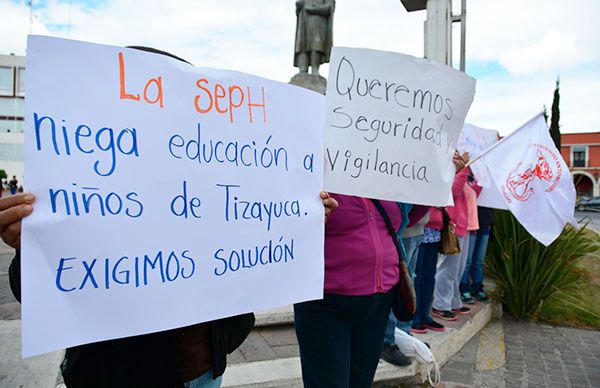 La sepH
niega educación a
niños de Tizayuca.
EXIGIMOS SOLUCIÓN
Queremos
Seguridad y
Vigilancia